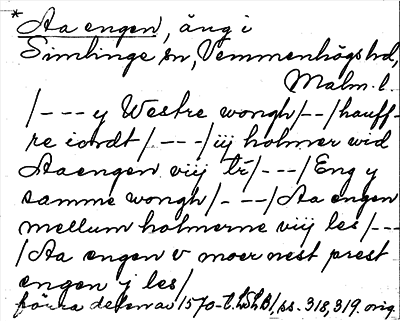 *Aa engen, äng i
Simlinge sn, Vemmenhögs hd,
Malm. l.
/--- y Westre wongh/--/hauff-
re iordt/---/iij holmer wid
Aaengen viij tr/---/Eng y
samme wongh/---/Aa engen
mellum holmerne viij les/---
/Aa engen v moer nest prest
engen j les/
förra delen av 1570-t. LSLB/ss. 318, 319. orig.